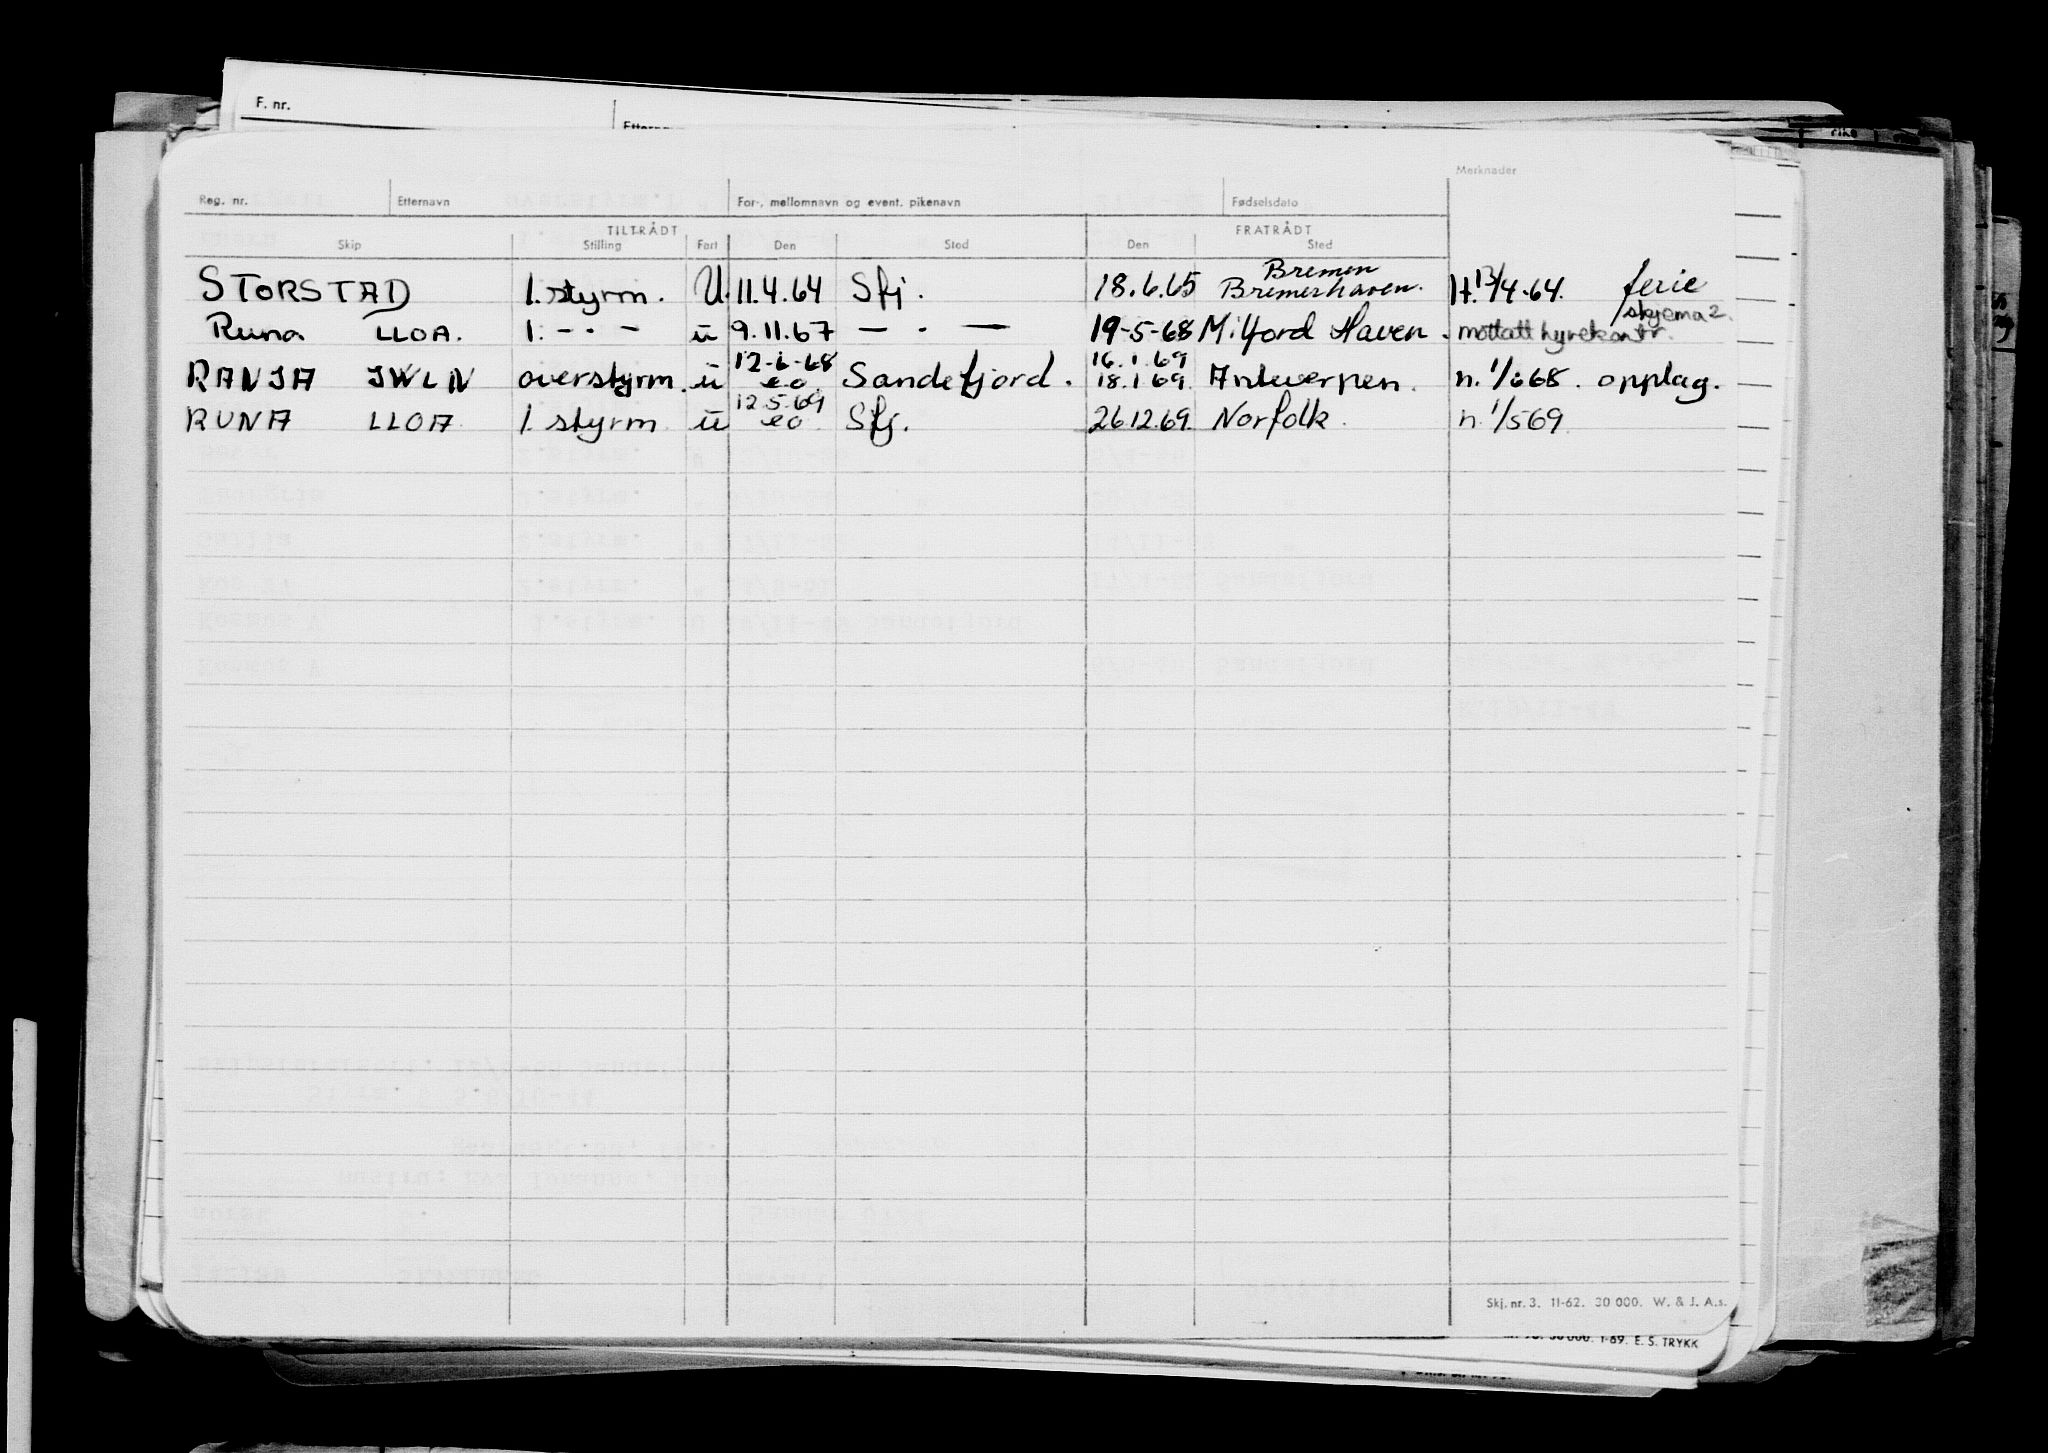 F. nr.
Merknader
Reg. nr. Etternavn For-, mellomnavn og event. pikenavn Fødselsdato
TILTRÅDT FRATRÅDT
Skip Stilling Fart Den Sted Den Sted
Bremen
STORSTAD 1. styrm. U. 11.4.64 Sfj. 18.6.65 Bremerhaven. H.13/4-64. ferie
skjema 2.
Runa LLOA. 1. - · - ū 9.11.67 — · — 19-5-68 Milford Haven. mottatt hyrekontr.
12-6-68 16.1.69
RANJA JWLN overstyrm. ū eo. Sandefjord. 18.1.69. Antwerpen. n. 1/6 68. opplag.
12.5.69
RUNA LLOA 1. styrm ū eo. Sfj. 26.12.69. Norfolk. n. 1/5 69
Skj. nr. 3. 11-62. 30 000. W. & J. A.s.
1-69. E. S. TRYKK